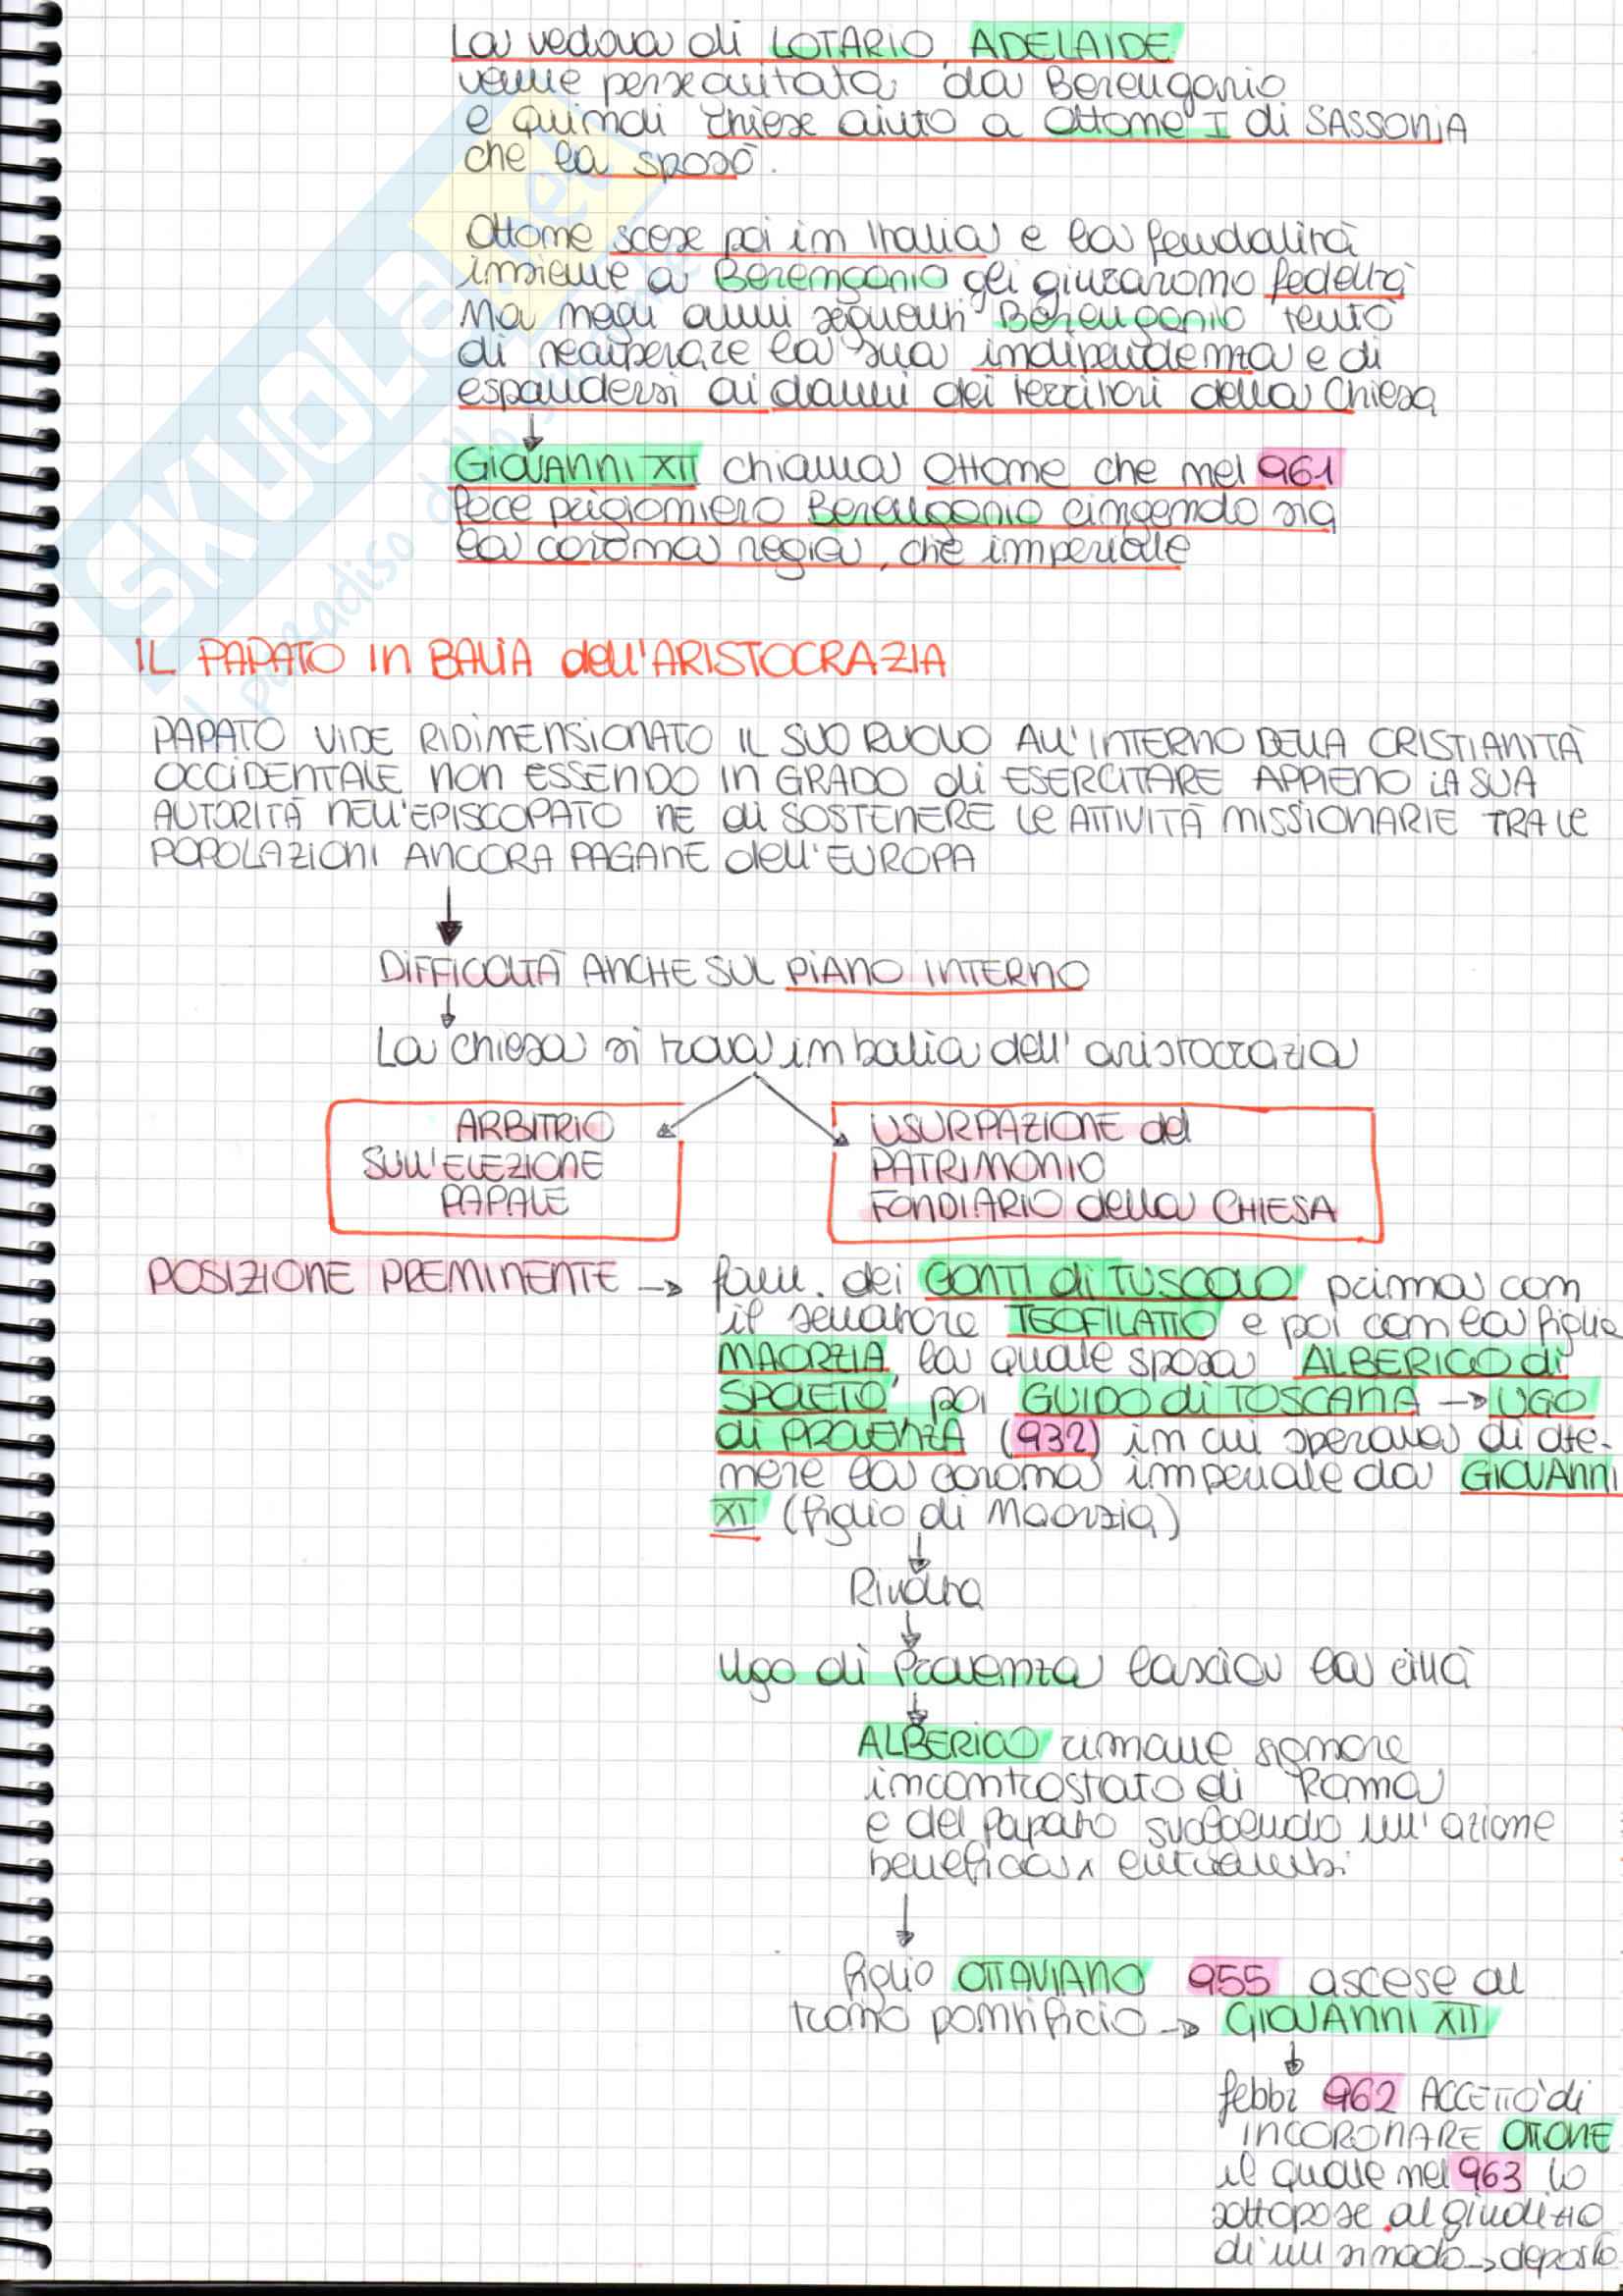 La vedova di LOTARIO, ADELAIDE
venne perseguitata da Berengario
e quindi chiese aiuto a Ottone I di SASSONIA
che la sposò.
Ottone scese poi in Italia e la feudalità
insieme a Berengario gli giurarono fedeltà
Ma negli anni seguenti Berengario tentò
di recuperare la sua indipendenza e di
espandersi ai danni dei territori della Chiesa
↓
GIOVANNI XII chiama Ottone che nel 961
fece prigioniero Berengario cingendo sia
la corona regia, che imperiale
IL PAPATO IN BALIA dell'ARISTOCRAZIA
PAPATO VIDE RIDIMENSIONATO IL SUO RUOLO ALL'INTERNO DELLA CRISTIANITÀ
OCCIDENTALE NON ESSENDO IN GRADO di ESERCITARE APPIENO LA SUA
AUTORITÀ NELL'EPISCOPATO NE di SOSTENERE le ATTIVITÀ MISSIONARIE TRA le
POPOLAZIONI ANCORA PAGANE dell'EUROPA
↓
DIFFICOLTÀ ANCHE SUL PIANO INTERNO
↓
La chiesa si trova in balia dell'aristocrazia
ARBITRIO
SULL'ELEZIONE
PAPALE
USURPAZIONE del
PATRIMONIO
FONDIARIO della CHIESA
POSIZIONE PREMINENTE → fam. dei CONTI di TUSCOLO prima con
il senatore TEOFILATTO e poi con la figlia
MAORZIA, la quale sposa ALBERICO di
SPOLETO, poi GUIDO di TOSCANA → UGO
di PROVENZA (932) in cui sperava di otte-
nere la corona imperiale da GIOVANNI
XI (figlio di Maorzia)
↓
Rivolta
↓
Ugo di Provenza lascia la città
↓
ALBERICO rimane signore
incontrastato di Roma
e del Papato svolgendo un'azione
benefica x entrambi
↓
figlio OTTAVIANO 955 ascese al
trono pontificio → GIOVANNI XII
↓
febbr 962 ACCETTÒ di
INCORONARE OTTONE
il quale nel 963 lo
sottopose al giudizio
di un sinodo → deposto
SKUOLA.net
il paradiso dello